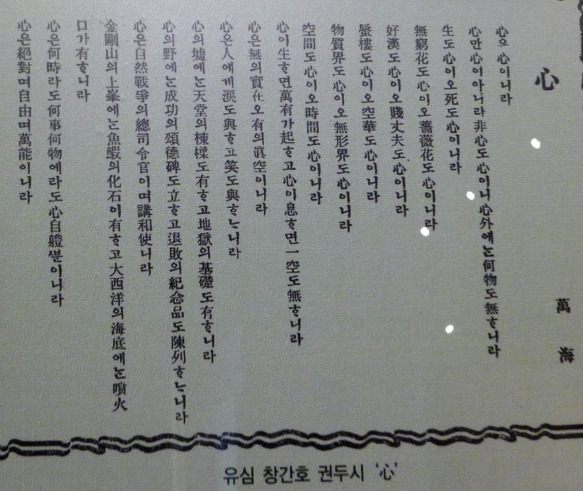 心
萬海
心은 心이니라
心만 心이 아니라 非心도 心이니 心外에ᄂᆞᆫ 何物도 無ᄒᆞ니라
生도 心이오 死도 心이니라
無窮花도 心이오 薔薇花도 心이니라
好漢도 心이오 賤丈夫도 心이니라
蜃樓도 心이오 空華도 心이니라
物質界도 心이오 無形界도 心이니라
空間도 心이오 時間도 心이니라
心이 生ᄒᆞ면 萬有가 起ᄒᆞ고 心이 息ᄒᆞ면 一空도 無ᄒᆞ니라
心은 無의 實在오 有의 眞空이니라
心은 人에게 淚도 與ᄒᆞ고 笑도 與ᄒᆞᄂᆞ니라
心의 墟에ᄂᆞᆫ 天堂의 棟樑도 有ᄒᆞ고 地獄의 基礎도 有ᄒᆞ니라
心의 野에ᄂᆞᆫ 成功의 頌德碑도 立ᄒᆞ고 退敗의 紀念品도 陳列ᄒᆞᄂᆞ니라
心은 自然戰爭의 總司令官이며 講和使니라
金剛山의 上峯에ᄂᆞᆫ 魚鰕의 化石이 有ᄒᆞ고 大西洋의 海底에ᄂᆞᆫ 噴火
口가 有ᄒᆞ니라
心은 何時라도 何事何物에라도 心自體ᄲᅮᆫ이니라
心은 絕對며 自由며 萬能이니라
유심 창간호 권두시 '心'